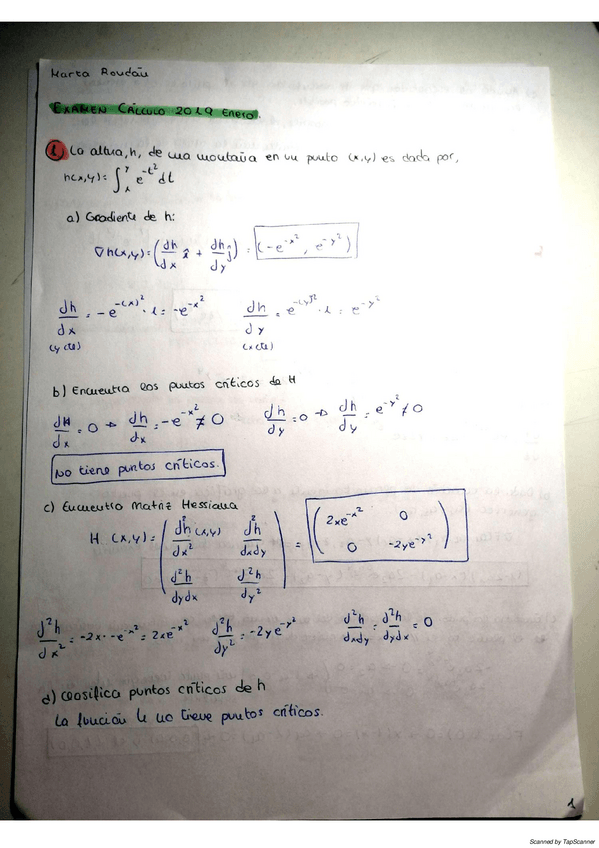 Marta Roudán
EXAMEN CÁLCULO 2019 ENERO.
1. La altura, h, de una montaña en un punto (x,y) es dada por,
h(x,y) = ∫_x^y e^{-t²} dt
a) Gradiente de h:
∇h(x,y) = (dh/dx î + dh/dy ĵ) = (-e^{-x²}, e^{-y²})
dh/dx = -e^{-(x)²} · 1 = -e^{-x²}   dh/dy = e^{-(y)²} · 1 = e^{-y²}
(y cte)   (x cte)
b) Encuentra los puntos críticos de H
dH/dx = 0 → dh/dx = -e^{-x²} ≠ 0   dh/dy = 0 → dh/dy = e^{-y²} ≠ 0
No tiene puntos críticos.
c) Encuentra Matriz Hessiana
H (x,y) = ( d²h(x,y)/dx²   d²h/dxdy ; d²h/dydx   d²h/dy² ) = ( 2xe^{-x²}   0 ; 0   -2ye^{-y²} )
d²h/dx² = -2x · -e^{-x²} = 2xe^{-x²}   d²h/dy² = -2ye^{-y²}   d²h/dxdy = d²h/dydx = 0
d) Clasifica puntos críticos de h
La función h no tiene puntos críticos.
1
Scanned by TapScanner